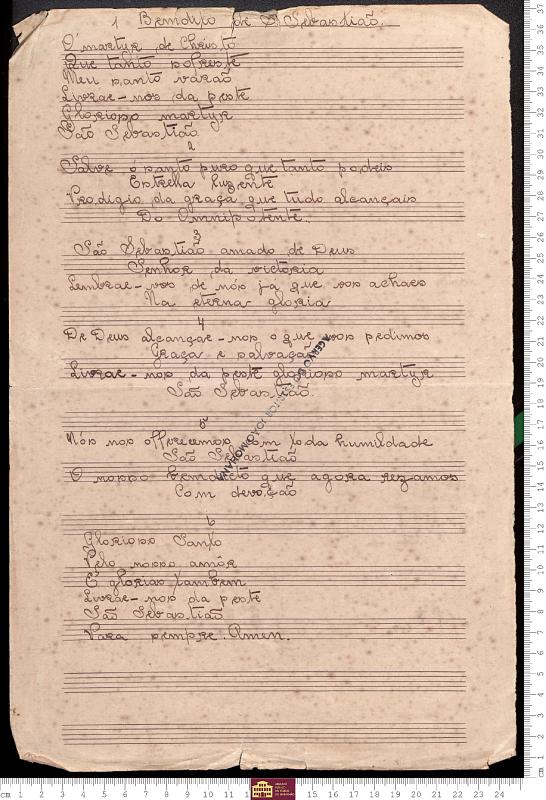 1 Bemdito de S. Sebastião.
O' martyr de Christo
Que tanto sofreste
Meu santo varão
Livrae-nos da peste
Glorioso martyr
São Sebastião
2
Salve ó santo puro que tanto podeis
Estrella luzente
Prodigio da graça que tudo alcançais
Do Omnipotente.
3
São Sebastião amado de Deus
Senhor da victoria
Lembrae-vos de nós ja que vos achaes
Na eterna gloria
4
De Deus alcançae-nos o que vos pedimos
Graça e salvação
Livrae-nos da peste glorioso martyr
São Sebastião.
5º
Nós nos offerecemos com toda humildade
São Sebastião
O nosso bemdicto que agora rezamos
Com devoção
6
Glorioso Santo
Pelo nosso amôr
E glorias tambem
Livrae-nos da peste
São Sebastião
Para sempre. Amen.
ACERVO DO
JOÃO MOHANA